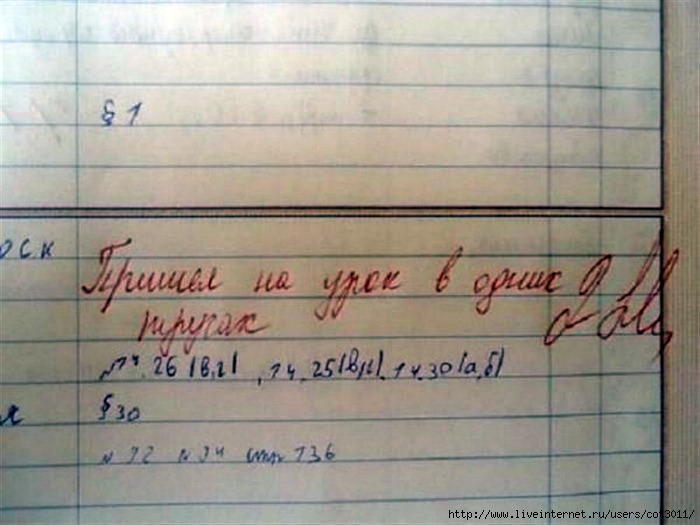 § 1
оск
Пришел на урок в одних
трусах
№14.26(в,г), 14.25(в,г), 14.30(а,б)
я §30
№92 №94 стр 136
http://www.liveinternet.ru/users/cot3011/